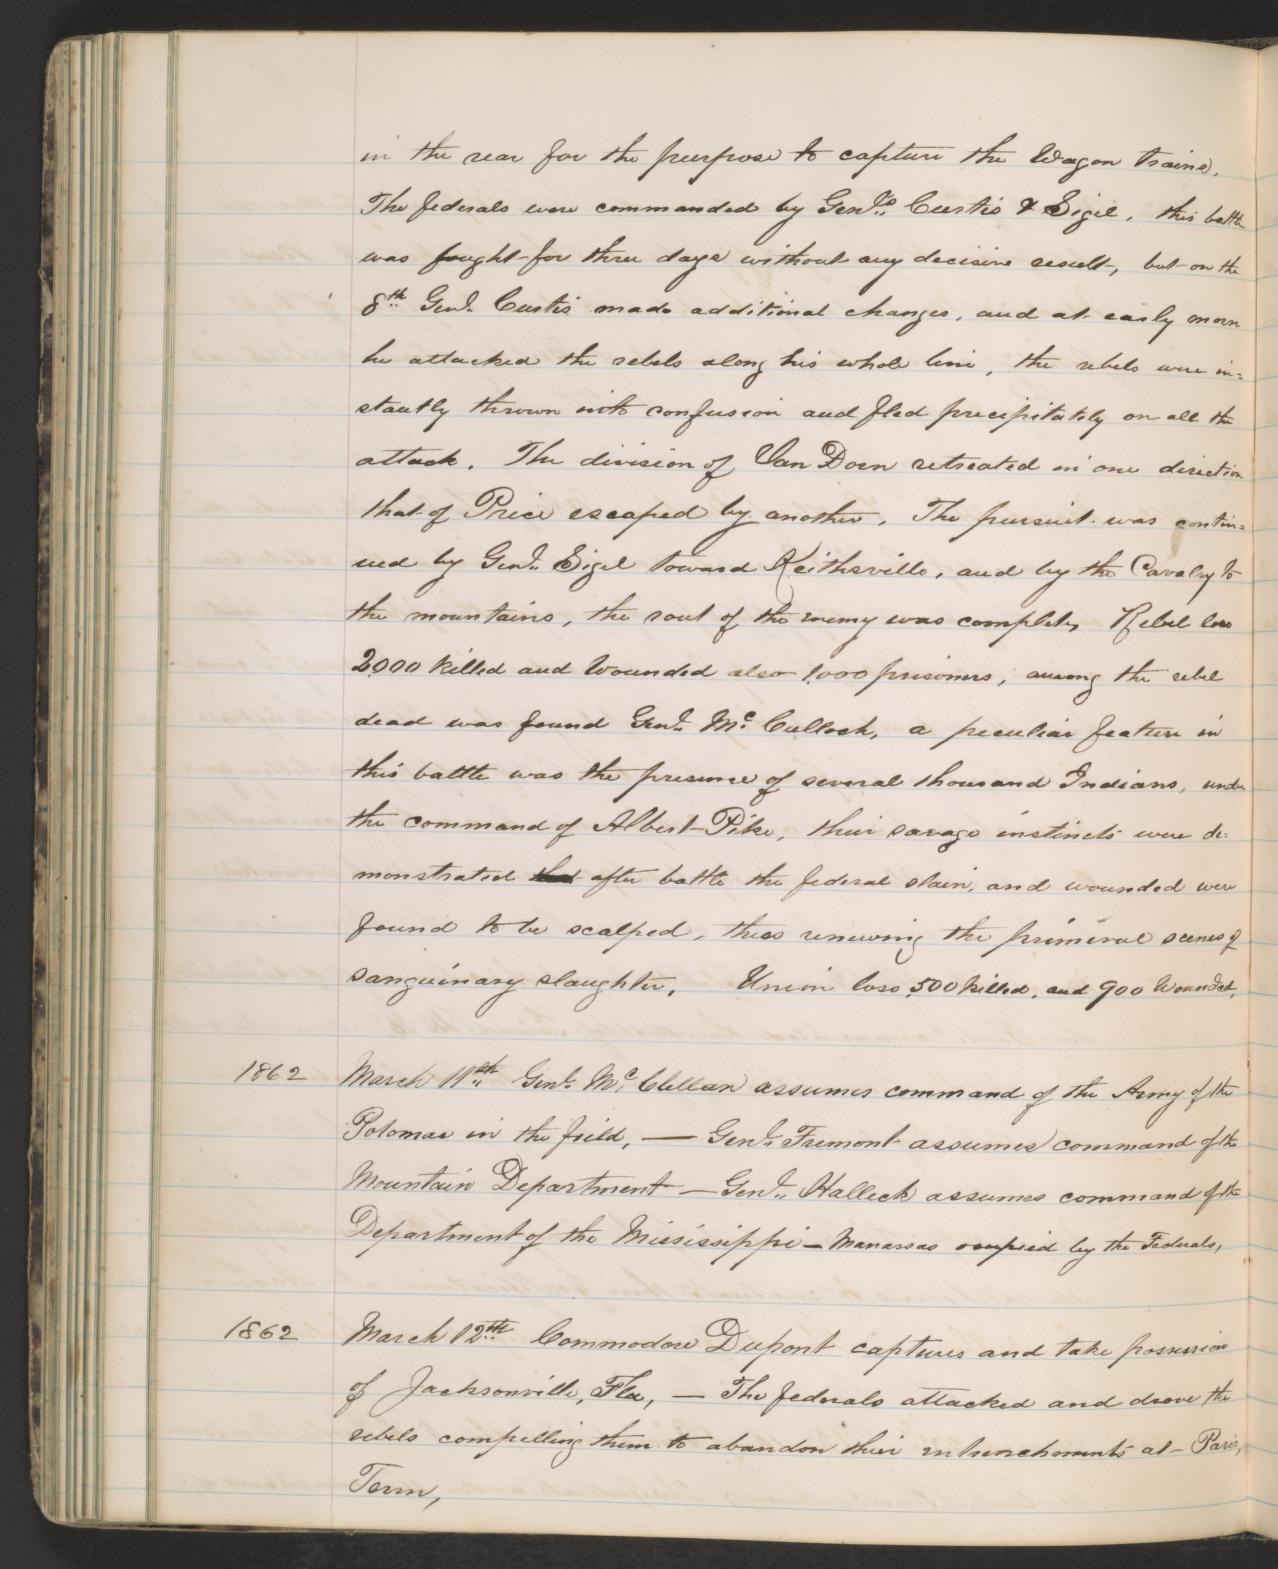 in the rear for the purpose to capture the Wagon trains.
The federals were commanded by Genls. Curtis & Sigel, this battle
was fought for three days without any decisive result, but on the
8th Genl. Curtis made additional changes, and at early morn
he attacked the rebels along his whole line, the rebels were in=
stantly thrown into confusion and fled precipitately on all the
attack. The division of Van Dorn retreated in one direction
that of Price escaped by another. The pursuit was contin=
ued by Genl. Sigel toward Keithsville, and by the Cavalry to
the mountains, the rout of the enemy was complete, Rebel loss
2,000 killed and Wounded also 1,000 prisoners, among the rebel
dead was found Genl. Mc. Culloch, a peculiar feature in
this battle was the presence of several thousand Indians, under
the command of Albert Pike, their savage instincts were de=
monstrated after battle the federal slain, and wounded were
found to be scalped, thus renewing the primeval scenes of
sanguinary slaughter, Union loss, 500 killed, and 900 Wounded,
1862 March 11th. Genl. Mc. Clellan assumes command of the Army of the
Potomac in the field, — Genl. Fremont assumes command of the
Mountain Department — Genl. Halleck assumes command of the
Department of the Mississippi — Manassas occupied by the Federals,
1862 March 12th. Commodore Dupont captures and take possession
of Jacksonville, Fla, — The federals attacked and drove the
rebels compelling them to abandon their entrenchments at Paris,
Tenn,